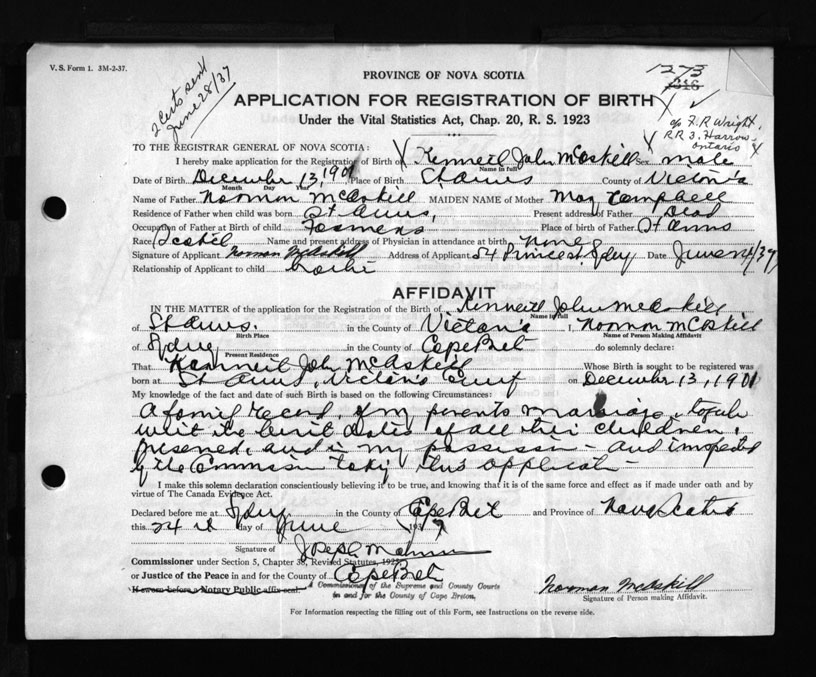 V. S. Form 1. 3M-2-37.
2 Certs sent
June 28/37
PROVINCE OF NOVA SCOTIA
1273
APPLICATION FOR REGISTRATION OF BIRTH
Under the Vital Statistics Act, Chap. 20, R. S. 1923
c/o F. R. Wright,
R.R 3. Harrow
Ontario
TO THE REGISTRAR GENERAL OF NOVA SCOTIA:
I hereby make application for the Registration of Birth of Kenneth John McAskill Sex male
Name in full
Date of Birth December 13, 1901 Place of Birth St Anns County of Victoria
Month Day Year
Name of Father Norman McAskill MAIDEN NAME of Mother Mary Campbell
Residence of Father when child was born St Anns, Present address of Father Dead
Occupation of Father at Birth of child Farmers Place of birth of Father St Anns
Race Scotch Name and present address of Physician in attendance at birth none
Signature of Applicant Norman McAskill Address of Applicant 54 Prince St, Sydney Date June 24/37
Relationship of Applicant to child brother
AFFIDAVIT
IN THE MATTER of the application for the Registration of the Birth of Kenneth John McAskill
Name in full
of St Anns. in the County of Victoria I, Norman McAskill
Birth Place Name of Person Making Affidavit
of Sydney in the County of Cape Bret do solemnly declare:
Present Residence
That Kenneth John McAskill Whose Birth is sought to be registered was
born at St Anns, Victoria County on December 13, 1901
My knowledge of the fact and date of such Birth is based on the following Circumstances:
A family record, of my parents marriage, together
with the birth dates of all their children,
preserved, and in my possession - and inspected
by the Commissioner taking this application -
I make this solemn declaration conscientiously believing it to be true, and knowing that it is of the same force and effect as if made under oath and by
virtue of The Canada Evidence Act.
Declared before me at Sydney in the County of Cape Bret and Province of Nova Scotia
this 24th day of June 1937
Signature of Joseph
Commissioner under Section 5, Chapter 38, Revised Statutes, 1923
or Justice of the Peace in and for the County of Cape Bret
If sworn before a Notary Public affix seal. A Commissioner of the Supreme and County Courts
in and for the County of Cape Breton.
Norman McAskill
Signature of Person making Affidavit.
For Information respecting the filling out of this Form, see Instructions on the reverse side.